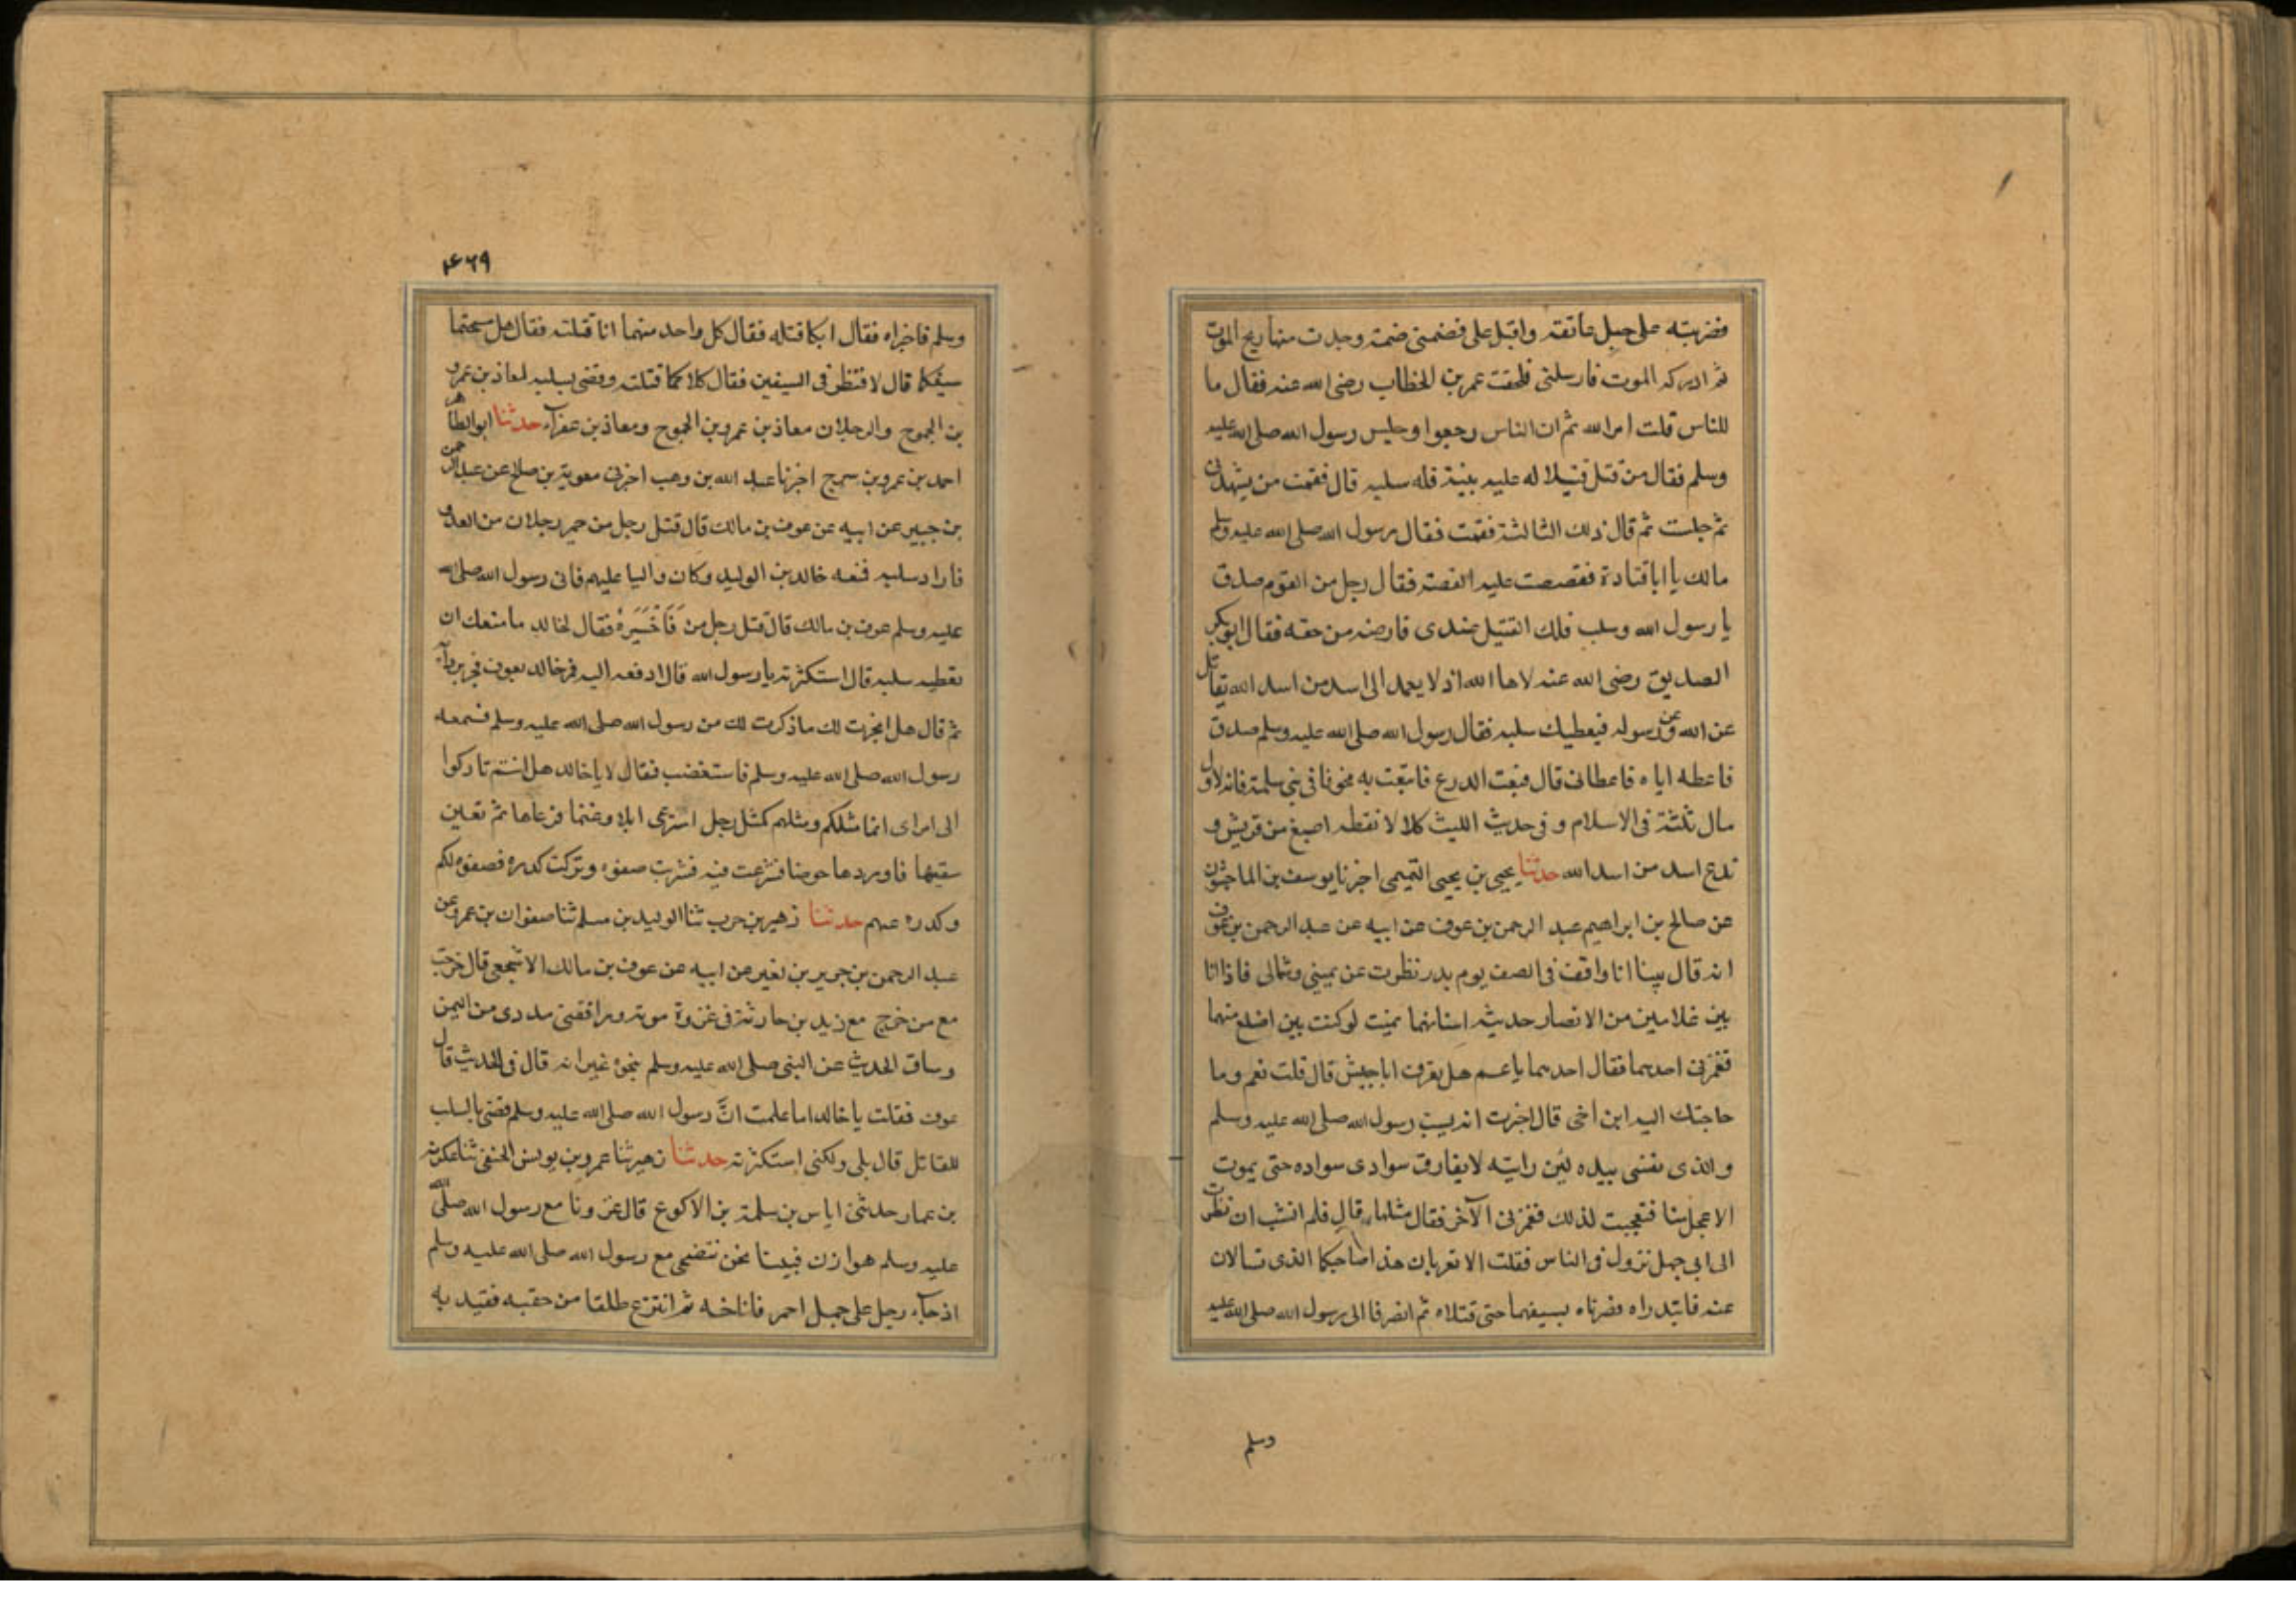 فضربته على حبل عاتقه واقبل على فضمنى ضمة وجدت منها ريح الموت
ثم ادركه الموت فارسلنى فلحقت عمر بن الخطاب رضى الله عنه فقال ما
للناس قلت امر الله ثم ان الناس رجعوا وجلس رسول الله صلى الله عليه
وسلم فقال من قتل قتيلا له عليه بينة فله سلبه قال فقمت من يشهد لى
ثم جلست ثم قال ذلك الثالثة فقمت فقال رسول الله صلى الله عليه وسلم
مالك يا ابا قتادة فقصصت عليه القصة فقال رجل من القوم صدق
يا رسول الله وسلب فلك القتيل عندى فارضه من حقه فقال ابو بكر
الصديق رضى الله عنه لاها الله اذ لا يعمد الى اسد من اسد الله يقاتل
عن الله وعن رسوله فيعطيك سلبه فقال رسول الله صلى الله عليه وسلم صدق
فاعطه اياه فاعطانى قال فبعت الدرع فابتعت به مخرفا فى بنى سلمة فانه لاول
مال تاثلته فى الاسلام و فى حديث الليث كلا لا نعطه اصيبغ من قريش و
تدع اسد من اسد الله حدثنا يحيى بن يحيى التميمى اخبرنا يوسف بن الماجشون
عن صالح بن ابراهيم عبد الرحمن بن عوف عن ابيه عن عبد الرحمن بن عوف
انه قال بينا انا واقف فى الصف يوم بدر نظرت عن يمينى وشمالى فاذا انا
بين غلامين من الانصار حديثه اسنانهما تمنيت لو كنت بين اضلع منهما
فغمزنى احدهما فقال احدهما يا عم هل تعرف ابا جهل قال قلت نعم وما
حاجتك اليه ابن اخى قال اخبرت انه يسب رسول الله صلى الله عليه وسلم
والذى نفسى بيده لئن رايته لا يفارق سوادى سواده حتى يموت
الاعجل منا فتعجبت لذلك فغمزنى الآخر فقال مثلها قال فلم انشب ان نظرت
الى ابى جهل نزول فى الناس فقلت الا تعريان هذا صاحبكما الذى تسالان
عنه فابتدراه فضرباه بسيفهما حتى قتلاه ثم انصرفا الى رسول الله صلى الله عليه
وسلم
۴۶۹
وسلم فاخبراه فقال ايكما قتله فقال كل واحد منهما انا قتلته فقال هل مسحتما
سيفكما قال لا فنظر فى السيفين فقال كلا كما قتلته وقضى بسلبه لمعاذ بن عمرو
بن الجموح والرجلان معاذ بن عمرو بن الجموح ومعاذ بن عفراء حدثنا ابو الطاهر
احمد بن عمرو بن سرح اخبرنا عبد الله بن وهب اخبرنى معوية بن صالح عن عبد الرحمن
بن جبير عن ابيه عن عوف بن مالك قال قتل رجل من حمير رجلان من العدو
فاراد سلبه فمنعه خالد بن الوليد وكان واليا عليهم فاتى رسول الله صلى الله
عليه وسلم عوف بن مالك قال قتل رجل من فَاَخْبَرَهُ فقال لخالد ما منعك ان
تعطيه سلبه قال استكثرته يا رسول الله قال ادفعه اليه فمر خالد بعوف فجر بردآءه
ثم قال هل انجزت لك ما ذكرت لك من رسول الله صلى الله عليه وسلم فسمعه
رسول الله صلى الله عليه وسلم فاستغضب فقال لا يا خالد هل انتم تاركوا
الى امراى انما مثلكم ومثلهم كمثل رجل استرعى ابلا وغنما فرعاها ثم تعين
سقيها فاوردها حوضا فشرعت فيه فشربت صفوه وتركت كدره فصفوه لكم
وكدره عليهم حدثنا زهير بن حرب ثنا الوليد بن مسلم ثنا صفوان بن عمرو عن
عبد الرحمن بن جرير بن نفير عن ابيه عن عوف بن مالك الاشجعى قال خرجت
مع من خرج مع زيد بن حارثة فى غزوة موته ورافقنى مددى من اليمن
وساق الحديث عن النبى صلى الله عليه وسلم بنحوه غير انه قال فى الحديث قال
عوف فقلت يا خالد اما علمت انَّ رسول الله صلى الله عليه وسلم قضى بالسلب
للقاتل قال بلى ولكنى استكثرته حدثنا زهير ثنا عمرو بن يونس الحنفى ثنا عكرمة
بن عمار حدثنى اياس بن سلمة بن الاكوع قال غزونا مع رسول الله صلى الله
عليه وسلم هوازن فبينا نحن نتضحى مع رسول الله صلى الله عليه وسلم
اذ جآء رجل على جمل احمر فاناخه ثم انتزع طلقا من حقبه فقيد به